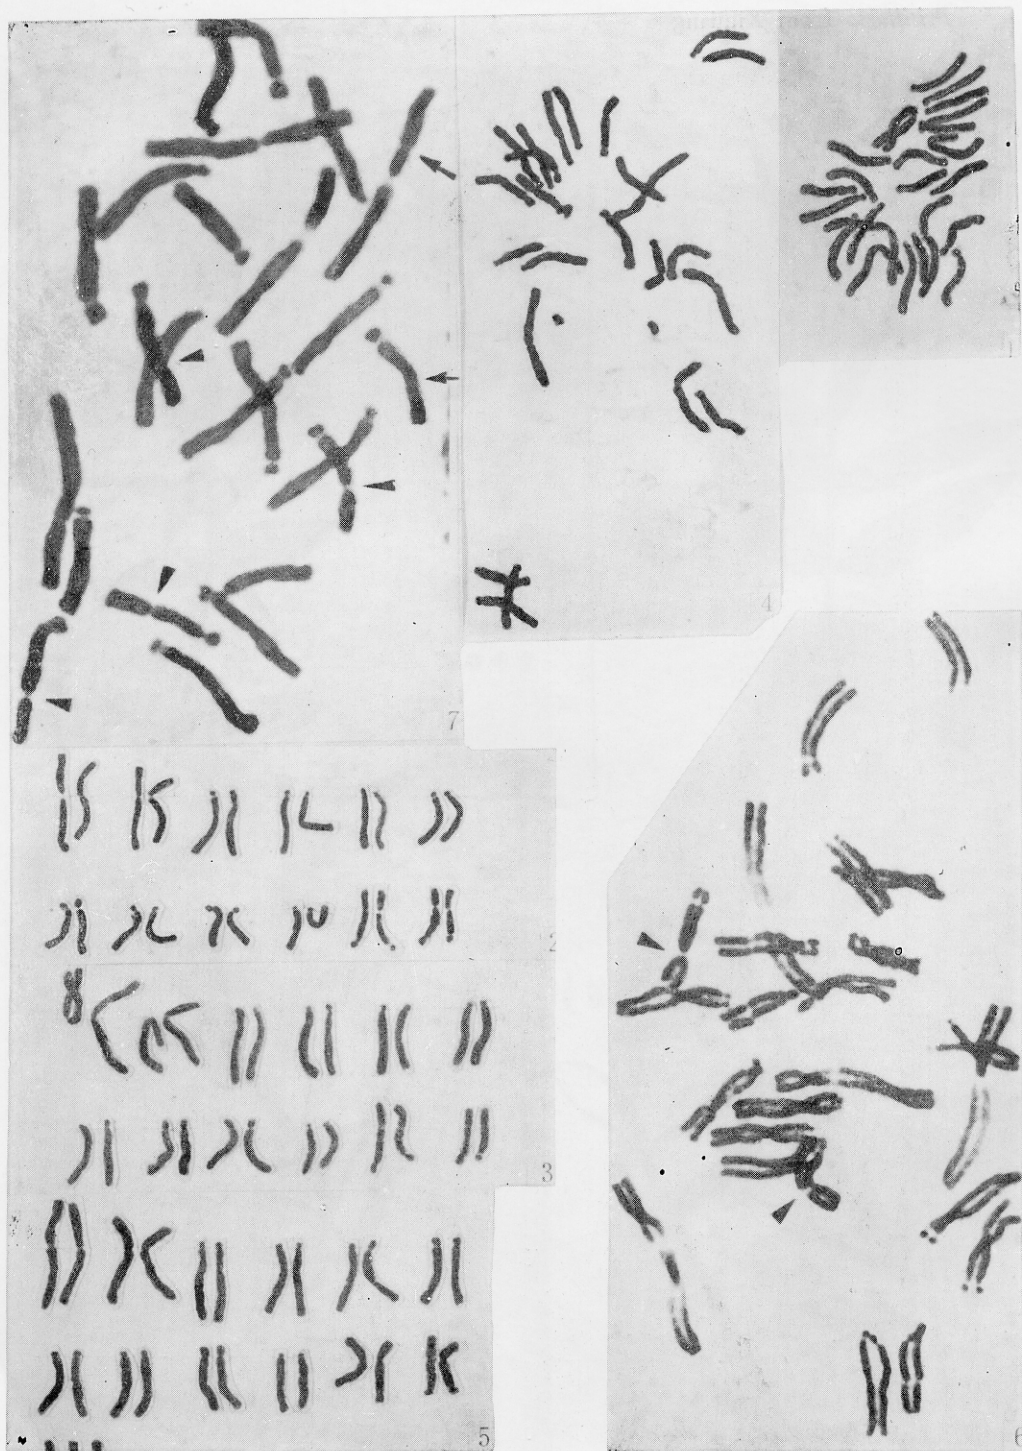 4
7
2
3
5
6